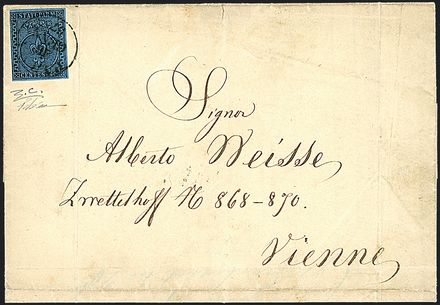 STATI PARM.
CENTES. 40
Signor
Alberto Weisse
Zwettelhoff N 868-870.
Vienne